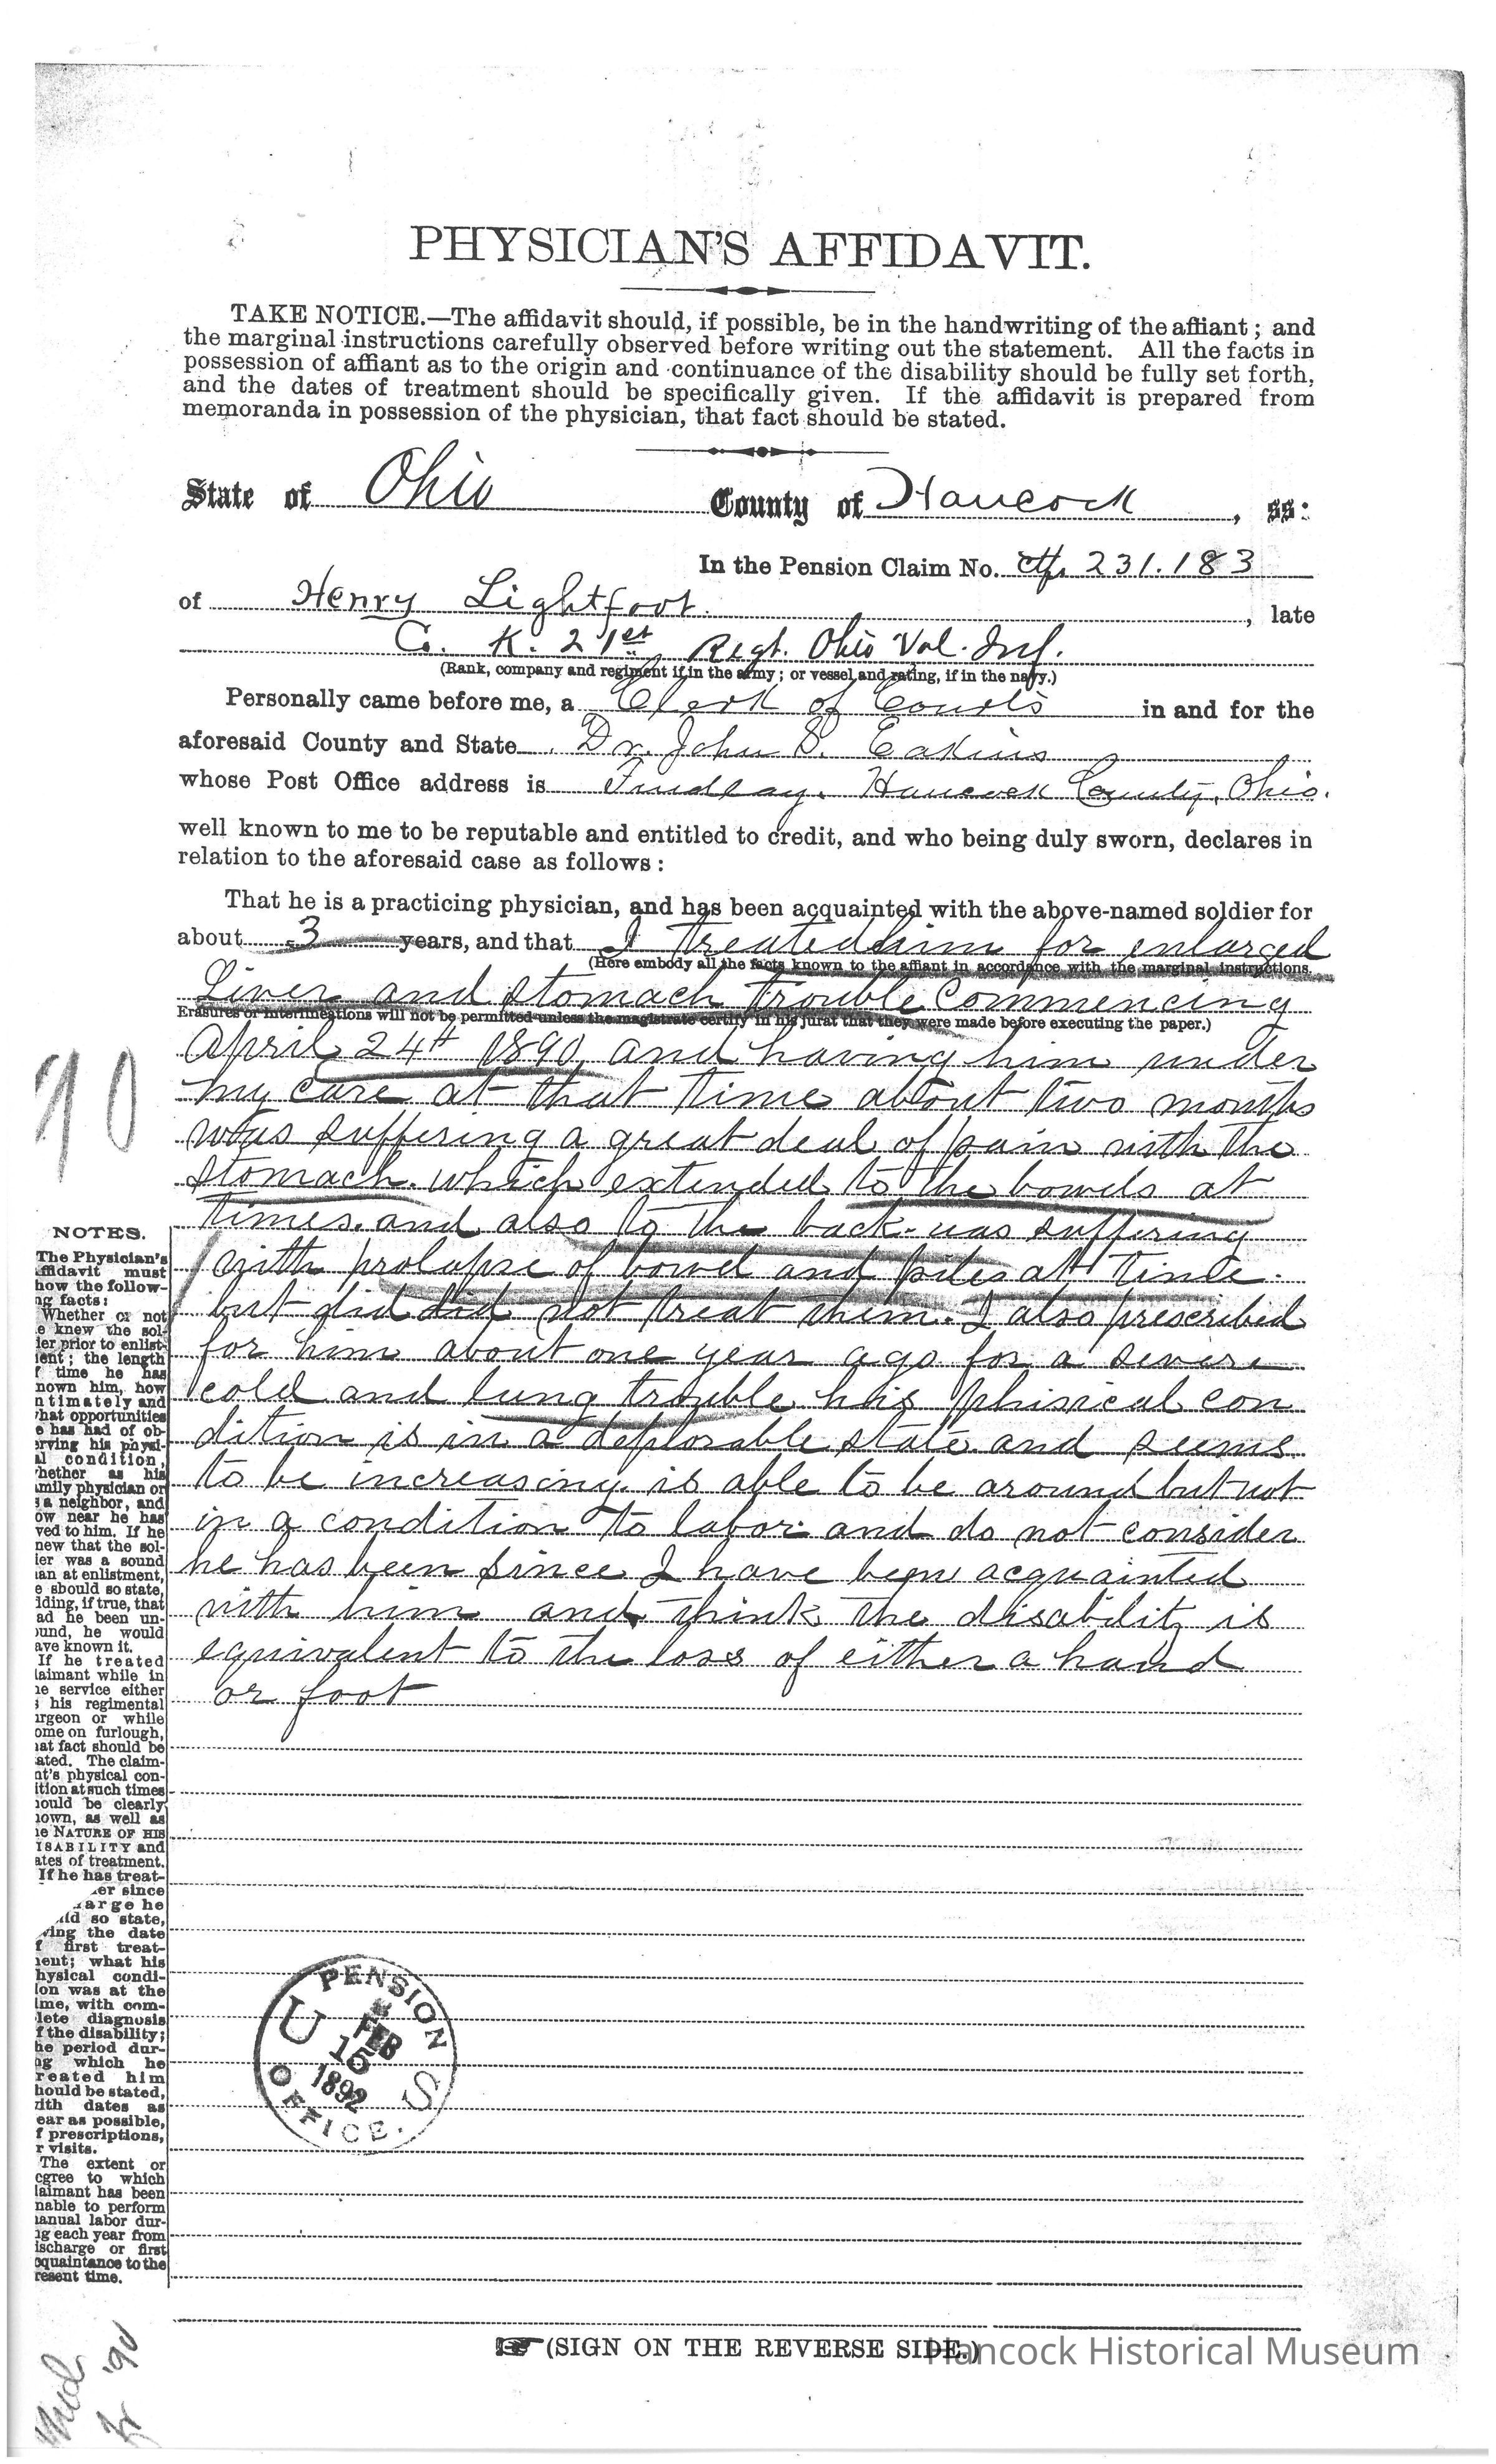 PHYSICIAN'S AFFIDAVIT.
TAKE NOTICE.—The affidavit should, if possible, be in the handwriting of the affiant; and
the marginal instructions carefully observed before writing out the statement. All the facts in
possession of affiant as to the origin and continuance of the disability should be fully set forth,
and the dates of treatment should be specifically given. If the affidavit is prepared from
memoranda in possession of the physician, that fact should be stated.
State of Ohio County of Hancock, ss:
In the Pension Claim No. Ctf. 231.183
of Henry Lightfoot, late
Co. K. 21st Regt. Ohio Vol. Inf.
(Rank, company and regiment if in the army; or vessel and rating, if in the navy.)
Personally came before me, a Clerk of Courts in and for the
aforesaid County and State Dr. John S. Eakins
whose Post Office address is Findlay, Hancock County, Ohio.
well known to me to be reputable and entitled to credit, and who being duly sworn, declares in
relation to the aforesaid case as follows:
That he is a practicing physician, and has been acquainted with the above-named soldier for
about 3 years, and that I treated him for enlarged
(Here embody all the facts known to the affiant in accordance with the marginal instructions.
Liver and stomach trouble Commencing
Erasures or interlineations will not be permitted unless the magistrate certify in his jurat that they were made before executing the paper.)
April 24th 1890, and having him under
my care at that time about two months
was suffering a great deal of pain with the
stomach. which extended to the bowels at
times. and also to the back. was suffering
with prolapse of bowel and piles at time.
but did did not treat them. I also prescribed
for him about one year ago for a severe
cold and lung trouble his phisical con
dition is in a deplorable state and seems
to be increasing. is able to be around but not
in a condition to labor and do not consider
he has been since I have been acquainted
with him and think the disability is
equivalent to the loss of either a hand
or foot
90
NOTES.
The Physician's
ffidavit must
how the follow-
ng facts:
Whether or not
e knew the sol-
ier prior to enlist-
ent; the length
f time he has
nown him, how
ntimately and
hat opportunities
e has had of ob-
erving his physi-
al condition,
hether as his
amily physician or
s a neighbor, and
ow near he has
ved to him. If he
new that the sol-
ier was a sound
an at enlistment,
e should so state,
dding, if true, that
ad he been un-
ound, he would
ave known it.
If he treated
laimant while in
ne service either
s his regimental
urgeon or while
ome on furlough,
hat fact should be
ated. The claim-
nt's physical con-
ition at such times
hould be clearly
hown, as well as
he NATURE OF HIS
ISABILITY and
ates of treatment.
If he has treat-
er since
arge he
ld so state,
ving the date
f first treat-
ment; what his
hysical condi-
ion was at the
ime, with com-
lete diagnosis
f the disability;
he period dur-
ng which he
reated him
hould be stated,
ith dates as
ear as possible,
f prescriptions,
r visits.
The extent or
egree to which
laimant has been
nable to perform
anual labor dur-
ng each year from
ischarge or first
cquaintance to the
resent time.
U S PENSION OFFICE.
FEB
15
1892
(SIGN ON THE REVERSE SIDE.)
Hancock Historical Museum